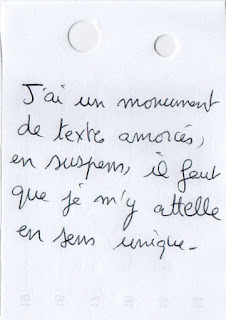 J'ai un monument
de textes amorcés,
en suspens, il faut
que je m'y attelle
en sens unique_